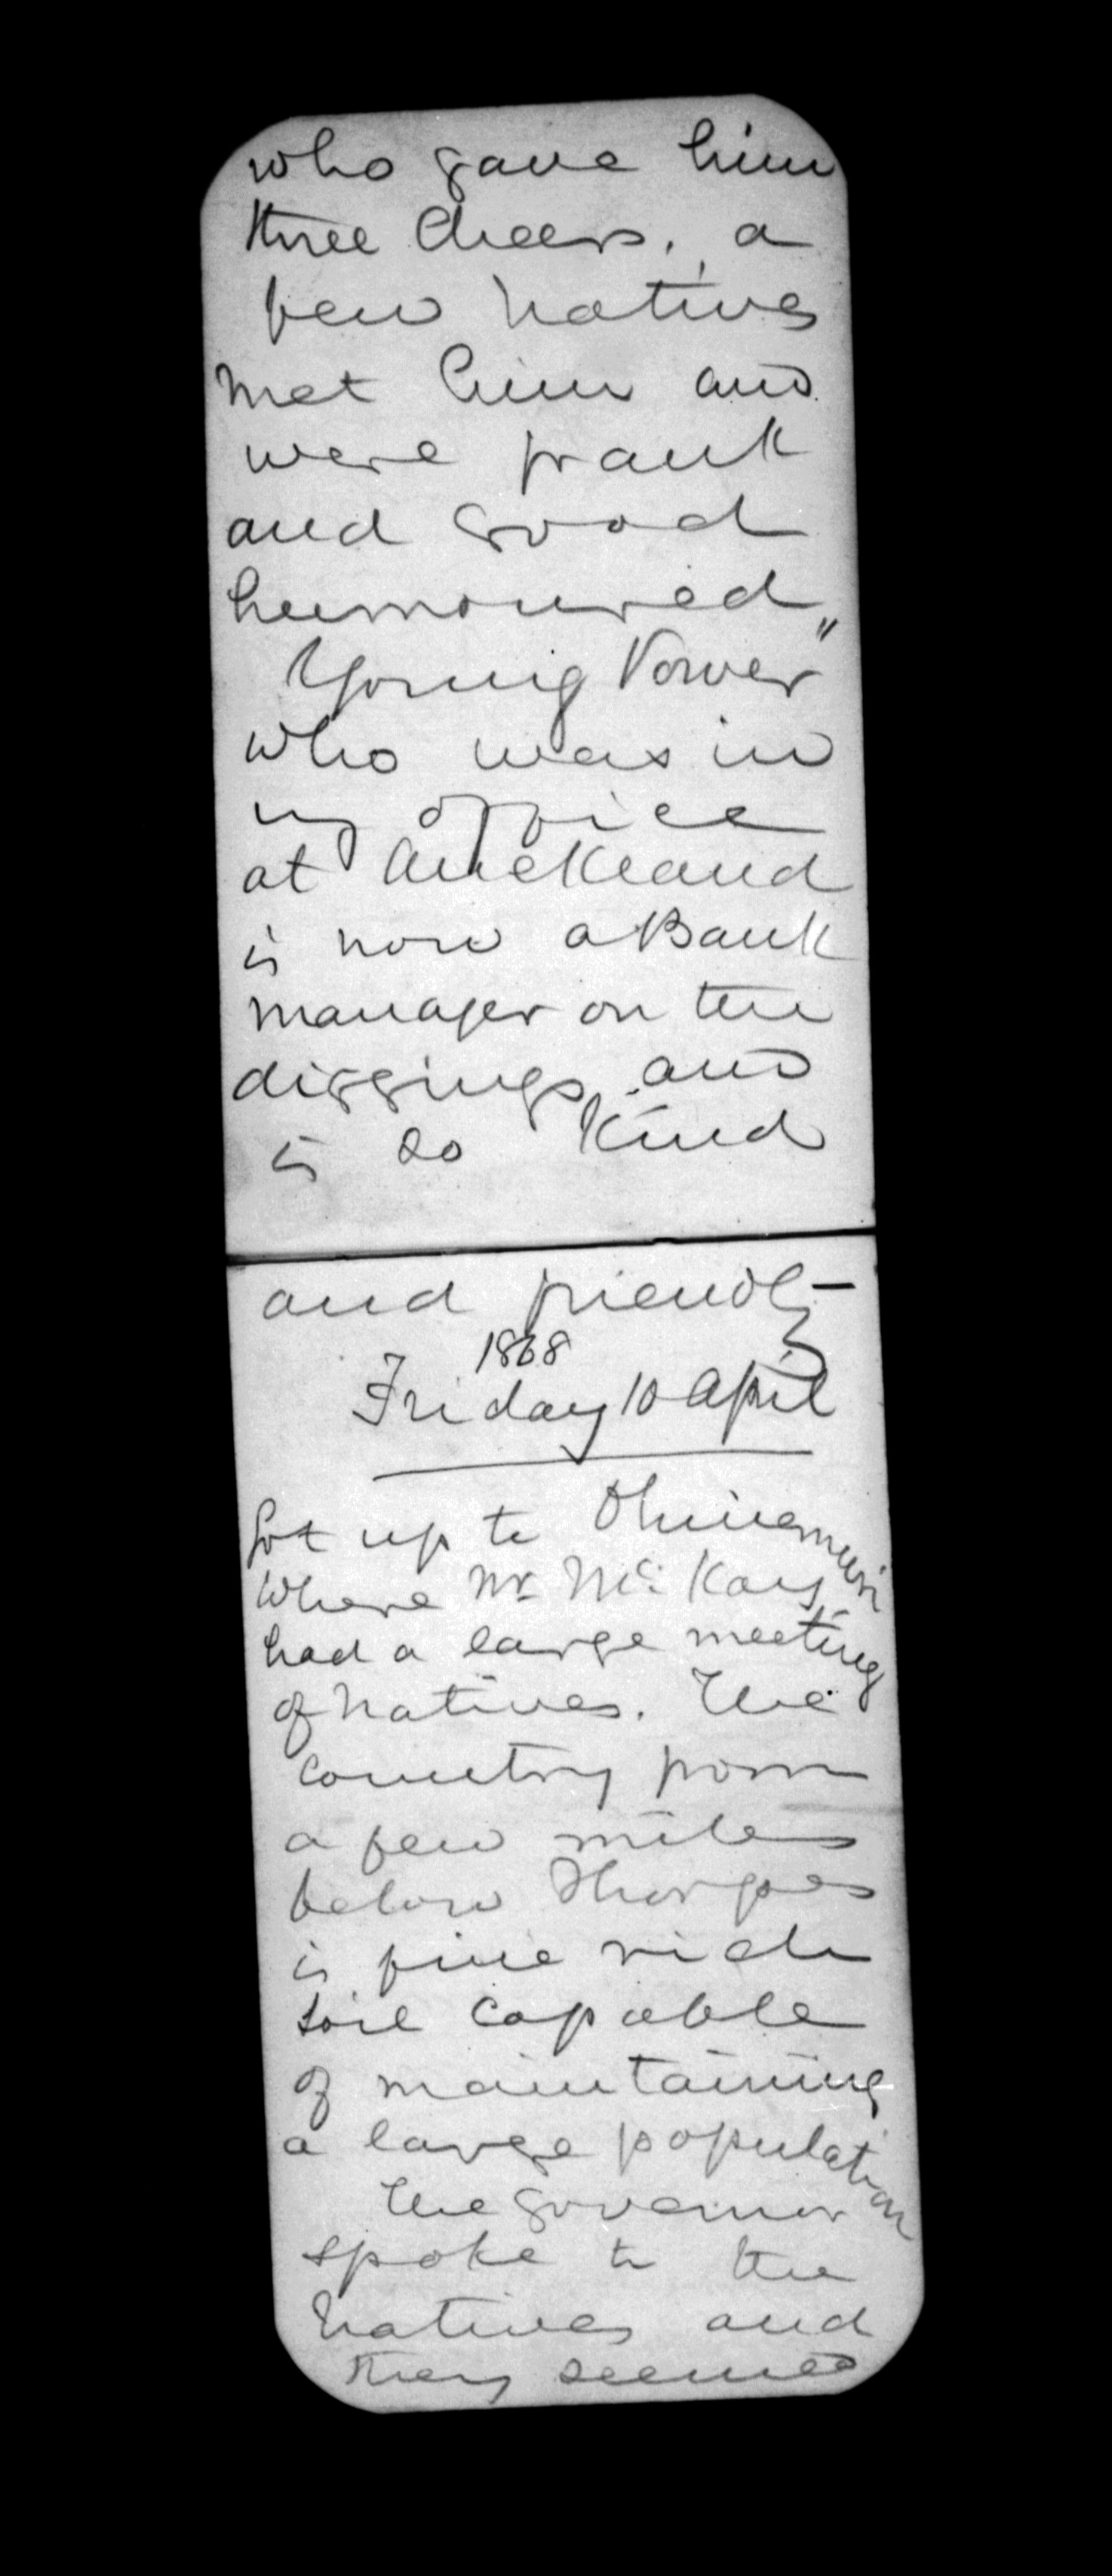 who gave him
three Cheers, a
few natives
met him and
were frank
and good
humoured,,
Young Power
who was in
my office
at Auckland
is now a Bank
manager on the
diggings, and
is so kind
and friendly –
1868
Friday 10 April
Got up to Ohinemuri
where Mr. McKay,
had a large meeting
of natives. The
country from
a few miles
below Thorpes
is fine rich
soil capable
of maintaining
a large population
The Governor
spoke to the
natives and
they seemed